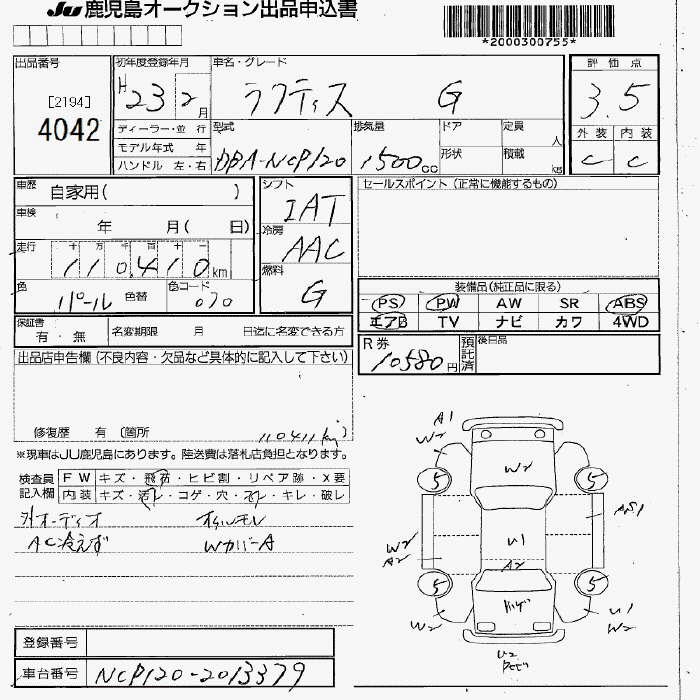 JU 鹿児島オークション出品申込書
*2000300755*
出品番号
[2194]
4042
初年度登録年月
H 23 2月
車名・グレード
ラクティス G
評価点
3.5
外装 内装
C C
ディーラー・並 行
モデル年式 年
ハンドル 左・右
型式
DBA-NCP120
排気量
1500 cc
ドア
形状
定員
人
積載
kg
車歴 自家用( )
車検 年 月( 日)
走行 十 万 千 百 十 一
110,410 km
色 パール 色替
色コード 070
シフト IAT
冷房 AAC
燃料 G
セールスポイント(正常に機能するもの)
装備品(純正品に限る)
PS PW AW SR ABS
エアB TV ナビ カワ 4WD
保証書 有・無
名変期限 月 日迄に名変できる方
R券 10580円
預託済
後日品
出品店申告欄(不良内容・欠品など具体的に記入して下さい)
修復歴 有 〔箇所
110411km)
※現車はJU鹿児島にあります。陸送費は落札店負担となります。
検査員記入欄
FW キズ・飛石・ヒビ割・リペア跡・X要
内装 キズ・汚レ・コゲ・穴・スレ・キレ・破レ
外オーディオ オイルモレ
AC冷えず WカバーA
登録番号
車台番号 NCP120-2013379
A1
W2
W2
5
5
AS1
W2
A2
U1
A2
5
5
W2
U1
W2
U2